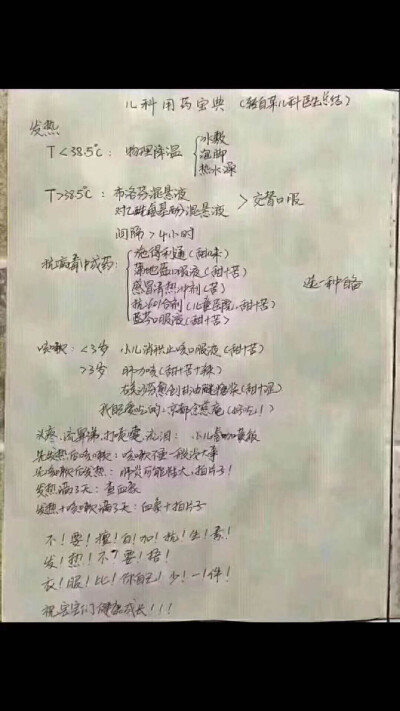 儿科用药宝典 (转自某儿科医生总结)
发热
T<38.5℃: 物理降温 冰敷
泡脚
热水澡
T>38.5℃: 布洛芬混悬液
对乙酰氨基酚混悬液 > 交替口服
间隔>4小时
抗病毒中成药: 施得利通 (甜味)
蒲地蓝口服液 (甜+苦)
感冒清热冲剂 (苦)
抗 合剂 (儿童医院, 甜+苦)
蓝芩口服液 (甜+苦)
选一种自备
咳嗽: <3岁 小儿消积止咳口服液 (甜+苦)
>3岁 肺力咳 (甜+苦+辣)
右美沙芬愈创甘油醚糖浆 (甜+ )
我 爱吃的, 京都念慈庵 (好吃!)
头疼, 流鼻涕, 打喷嚏, 流泪: 小儿氨 黄敏
先发热后咳嗽: 咳嗽不重一般没大事
先咳嗽后发热: 肺炎可能性大, 拍片子!
发热满3天: 查血象
发热+咳嗽满3天: 血象+拍片子
不!要!擅!自!加!抗!生!素!
发!热!不!要!捂!
衣!服!比!你自己!少!一!件!
祝宝宝们健康成长!!!